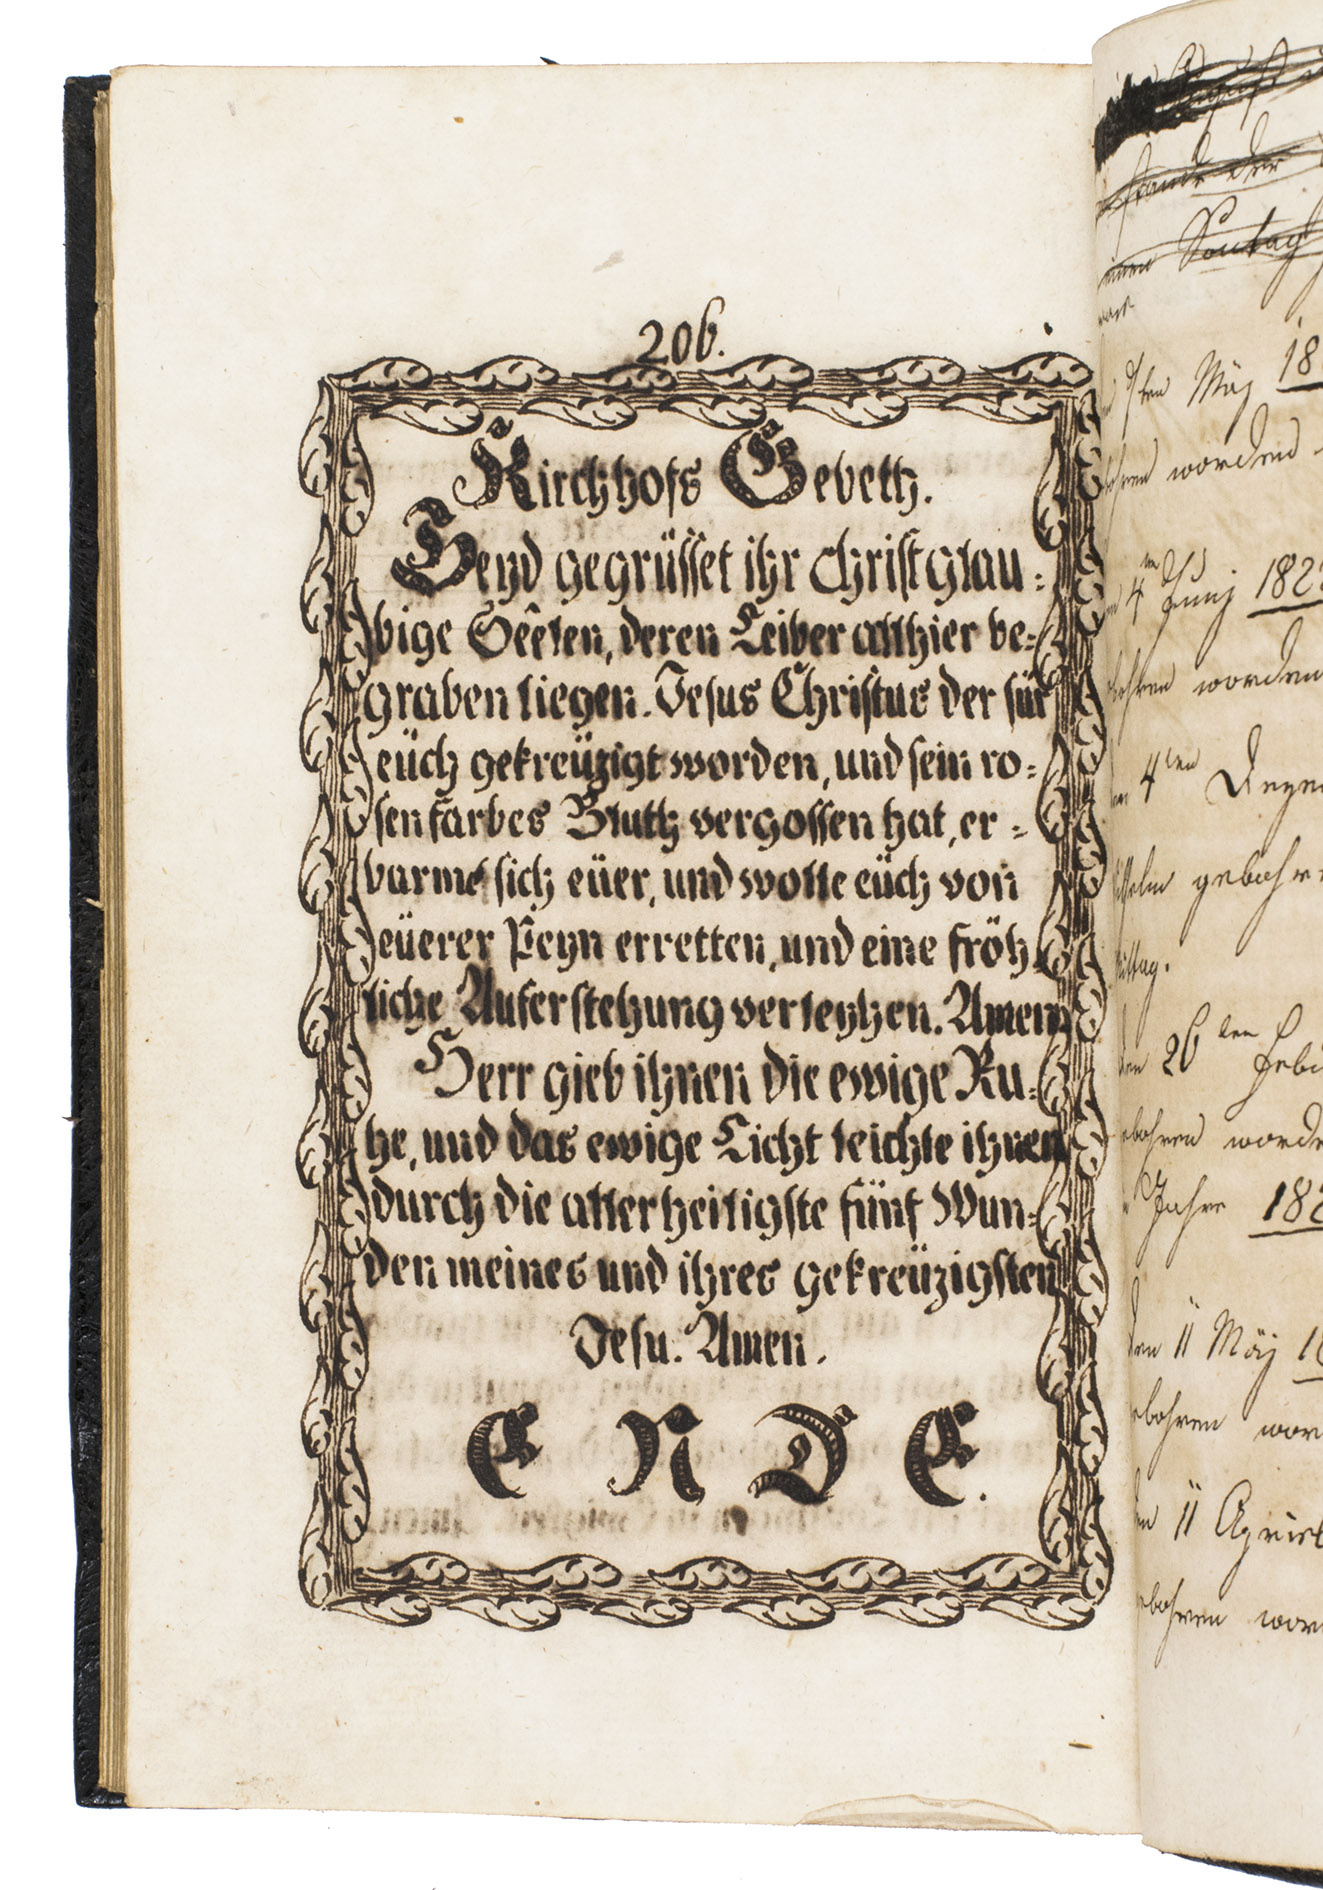 206.
Kirchhofs Gebeth.
Seyd gegrüsset ihr Christglau=
bige Seêlen, deren Leiber allhier be=
graben liegen. Jesus Christus der für
eüch gekreüzigt worden, und sein ro=
senfarbes Bluth vergossen hat, er=
barme sich eüer, und wolle eüch von
eüerer Peyn erretten, und eine fröh=
liche Auferstehung verleyhen. Amen.
Herr gieb ihnen die ewige Ru=
he, und das ewige Licht leichte ihnen
durch die allerheiligste fünf Wun=
den meines und ihres gekreüzigsten
Jesu. Amen.
ENDE.
stande der
Sontag
7ten Mäj 18
worden
4 Junj 182
worden
4ten
gebohre
26ten Feb
gebohren word
Jahre 182
den 11 Mäj 18
gebohren wor
11 April
gebohren wor